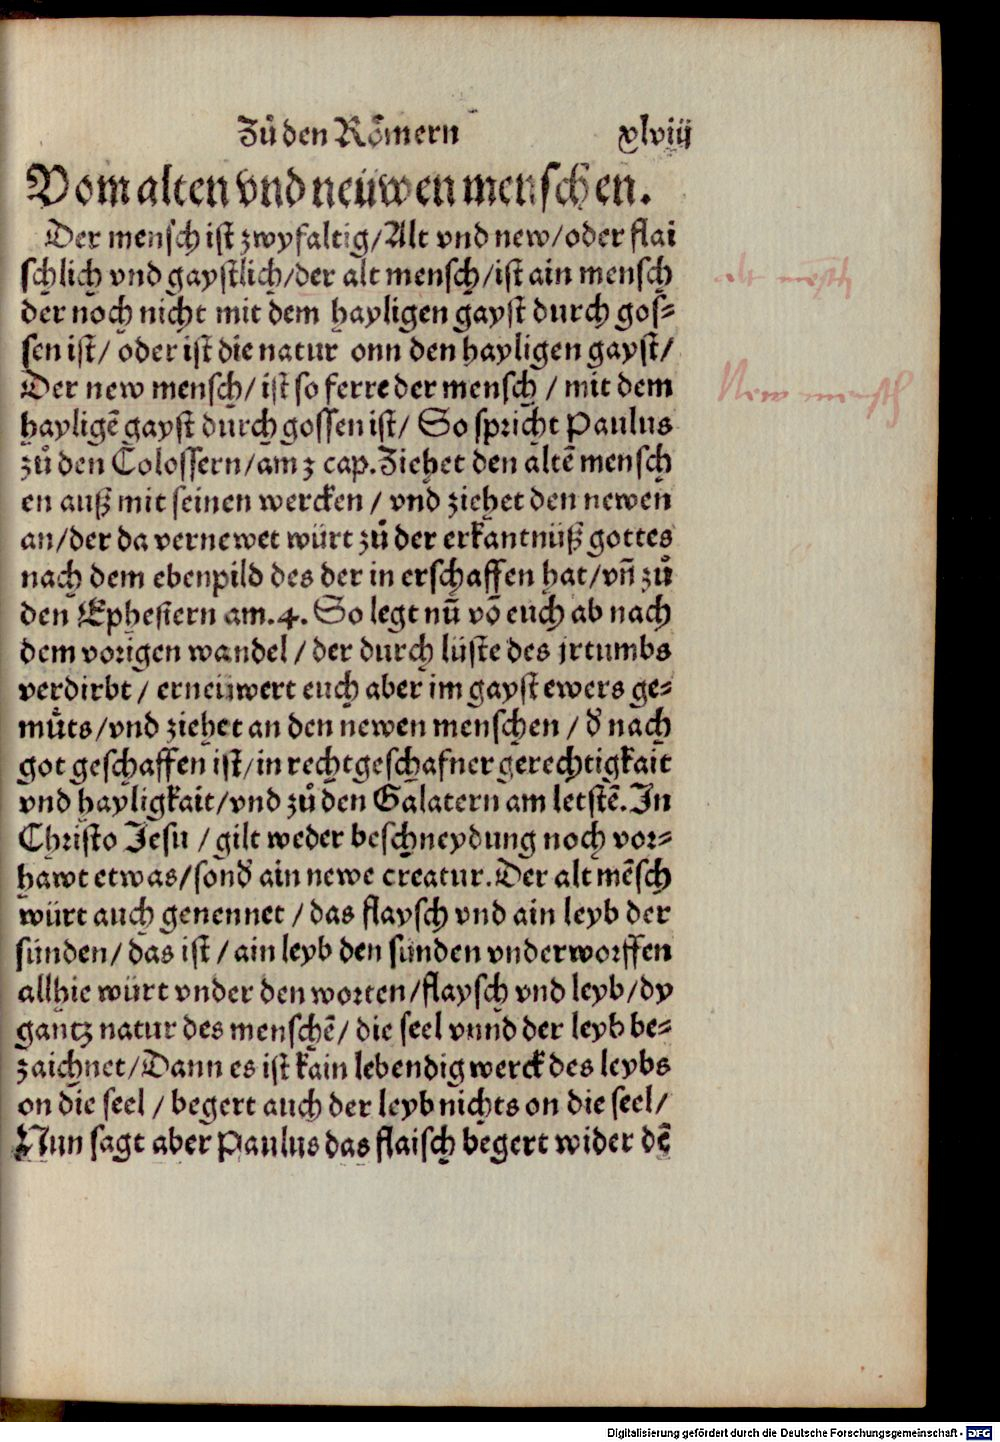 Zů den Römern xlviij
Vom alten vnd neüwen menschen.
Der mensch ist zwyfaltig/Alt vnd new/oder flai
schlich vnd gaystlich/der alt mensch/ist ain mensch
der noch nicht mit dem hayligen gayst durch gos-
sen ist/ oder ist die natur onn den hayligen gayst/
Der new mensch/ ist so ferre der mensch / mit dem
hayligē gayst durch gossen ist/ So spricht Paulus
zů den Colossern/am 3 cap. Ziehet den altē mensch
en auß mit seinen wercken / vnd ziehet den newen
an/der da vernewet würt zů der erkantnüß gottes
nach dem ebenpild des der in erschaffen hat/vñ zů
den Ephesiern am .4. So legt nū vō euch ab nach
dem vorigen wandel / der durch lüste des jrtumbs
verdirbt / erneüwert euch aber im gayst ewers ge-
můts/vnd ziehet an den newen menschen / d' nach
got geschaffen ist/in rechtgeschafner gerechtigkait
vnd hayligkait/vnd zů den Galatern am letstē. In
Christo Jesu / gilt weder beschneydung noch vor-
hawt etwas/sond' ain newe creatur. Der alt mēsch
würt auch genennet / das flaysch vnd ain leyb der
sünden/ das ist / ain leyb den sünden vnderworffen
allhie würt vnder den worten/flaysch vnd leyb/dy
gantz natur des menschē/ die seel vnnd der leyb be-
zaichnet/Dann es ist kain lebendig werck des leybs
on die seel / begert auch der leyb nichts on die seel/
Nun sagt aber Paulus das flaisch begert wider dē
alt mēsch
New mensch
Digitalisierung gefördert durch die Deutsche Forschungsgemeinschaft - DFG